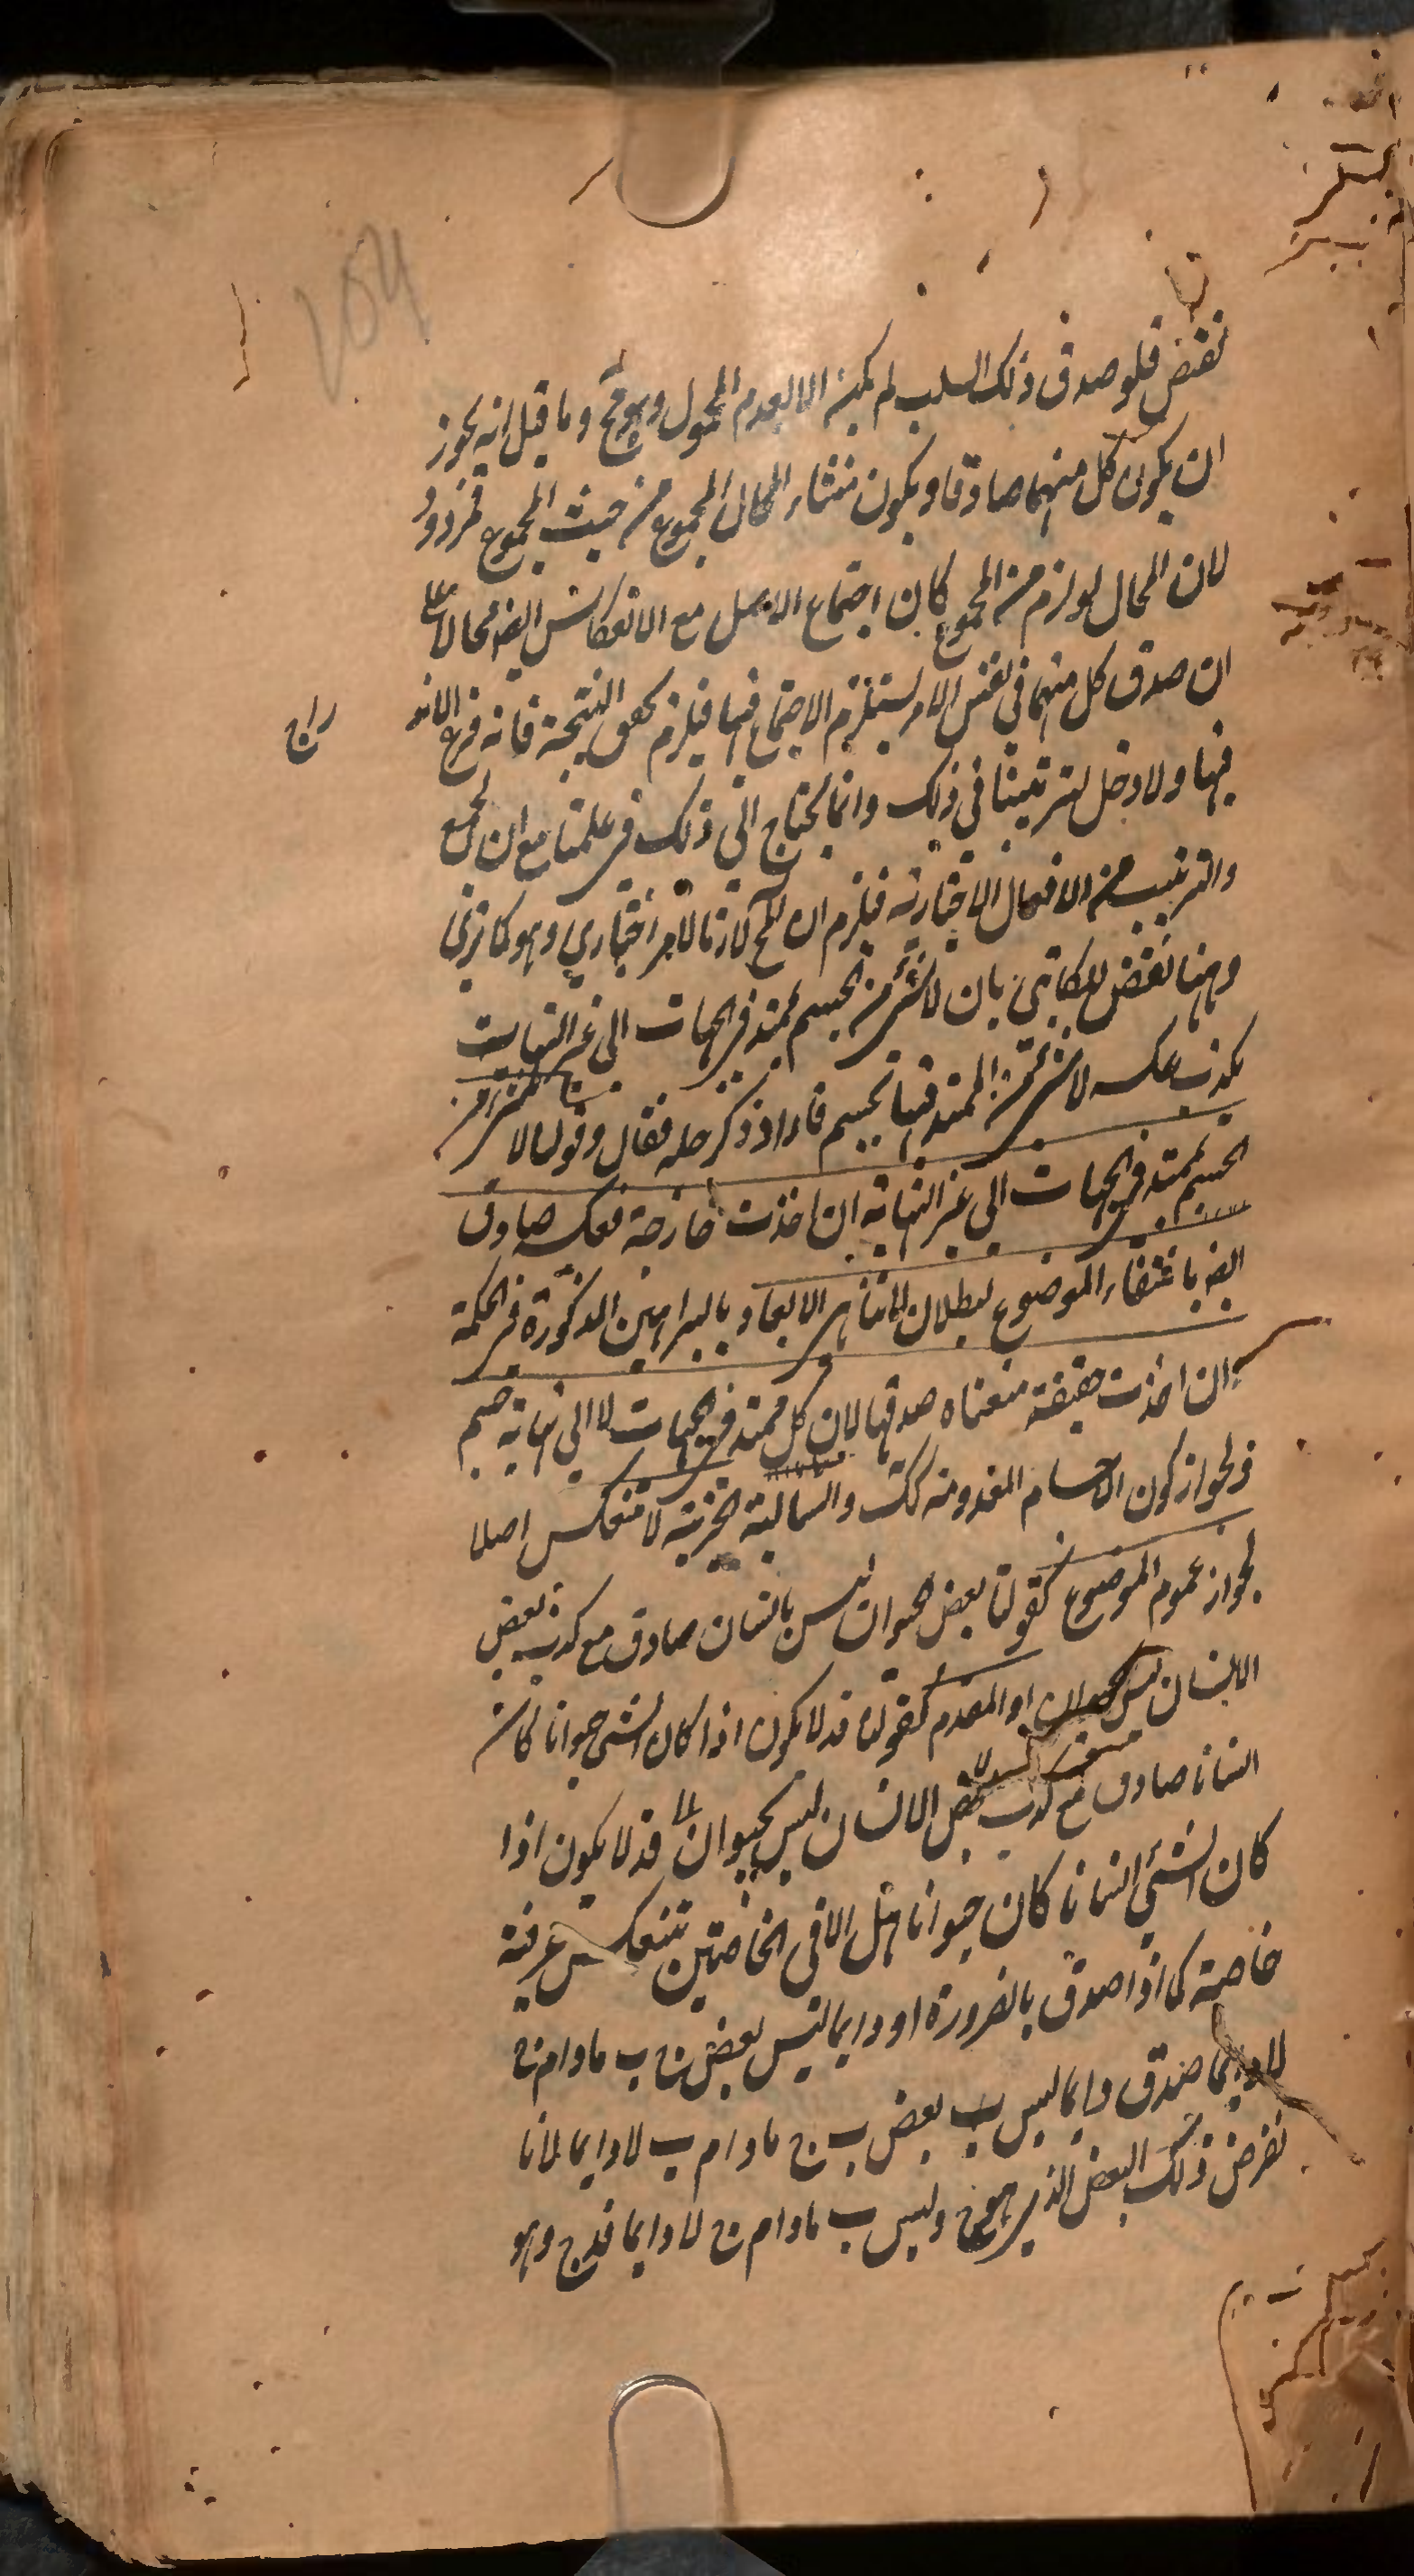 نقض فلو صدق ذلك السلب لم يكن الا لعدم المحمول وهو مح وما قيل انه يجوز
ان يكون كل منهما صادقا ويكون منشاء المحال المجموع من حيث المجموع فمردود
لان المحال لو لزم من المجموع كان اجتماع الاصل مع الانعكاس ايضا محالا على
ان صدق كل منهما في نفس الامر يستلزم الاجتماع فيها فيلزم تحقق النتيجة فانه فرع
فيها ولا دخل لترتيبنا في ذلك وانما يحتاج الى ذلك في علمنا مع ان الجمع
والترتيب من الافعال الاختيارية فيلزم ان المح لازما لامر اختياري وهو كما ترى
وههنا نقض للكاتبي بان لا شئ من الجسم بممتد في الجهات الى غير النهاية
يكذب عكسه لا شئ من الممتد فيها بجسم فاراد ذكر حله فقال وقولنا لا شئ من
الجسم بممتد في الجهات الى غير النهاية ان اخذت خارجة فعكسه صادق
ايضا بانتفاء الموضوع لبطلان لا تناهي الابعاد بالبراهين المذكورة في الحكمة
ان اخذت حقيقة منعناه صدقها لان كل ممتد في الجهات لا الى نهاية جسم
فرلجواز كون الاجسام المعدومة كك والسالبة الجزئية لا تنعكس اصلا
لجواز عموم الموضوع كقولنا بعض الحيوان ليس بانسان صادق مع كذب بعض
الانسان ليس بحيوان او المقدم كقولنا قد لا يكون اذا كان الشئ حيوانا كان
انسانا صادق مع كذب بعض الانسان ليس بحيوان قد لا يكون اذا
كان الشئ انسانا كان حيوانا مثل الا في الخاصتين تنعكس عرفية
خاصة كما اذا صدق بالضرورة او دايما ليس بعض ج ب مادام ج
لا دايما صدق دايما ليس بعض ب ج مادام ب لا دايما لانا
نفرض ذلك البعض الذي هو ج وليس ب مادام ج لا دايما فدج وهو